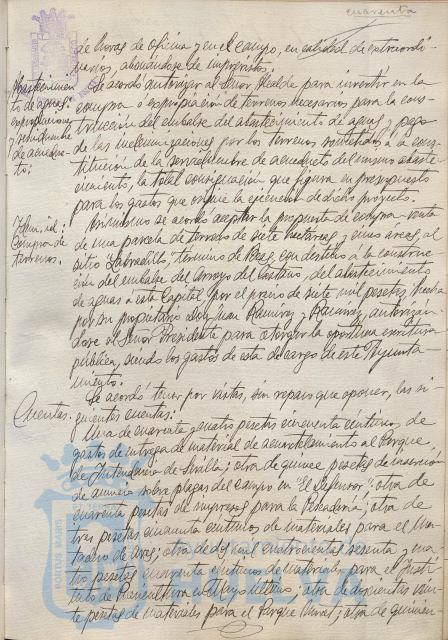 cuarenta
de horas de oficina y en el campo, en calidad de extraordi-
narios, abonándose de imprevistos.
Abastecimien-
to de aguas:
expropiaciones
y servidumbre
de acueduc-
to:
Se acordó autorizar al Señor Alcalde para invertir en la
compra o expropiación de terrenos necesarios para la cons-
trucción del embalse del abastecimiento de aguas y pago
de las indemnizaciones por los terrenos sometidos a la cons-
titución de la servidumbre de acueducto del mismo abaste-
cimiento, la total consignación que figura en presupuesto
para los gastos que origine la ejecución de dicho proyecto.
Idm, id.:
Compra de
terrenos.
Asimismo se acordó aceptar la propuesta de compra-venta
de una parcela de terreno de siete hectáreas y cinco áreas, al
sitio "Labradillo", término de Beas, con destino a la construc-
ción del embalse del arroyo del Castaño, del abastecimiento
de aguas a esta Capital, por el precio de siete mil pesetas, hecha
por su propietario don Juan Ramírez y Ramírez, autorizán-
dose al Señor Presidente para otorgar la oportuna escritura
pública, siendo los gastos de esta de cargo de este Ayunta-
miento.
Cuentas:
Se acordó tener por vistas, sin reparo que oponer, las si-
guientes cuentas:
Una de cuarenta y cuatro pesetas cincuenta céntimos, de
gastos de entrega de material de acuartelamiento al Parque
de Intendencia de Sevilla; otra de quince pesetas de inserción
de anuncio sobre plagas del campo en "El Defensor"; otra de
cuarenta pesetas de impresos para la Pescadería; otra de
tres pesetas cincuenta céntimos de materiales para el Ma-
tadero de Aves; otra de dos mil cuatrocientas sesenta y cua-
tro pesetas cincuenta céntimos de materiales para el Insti-
tuto de Puericultura
otra de doscientas vein-
te pesetas de materiales para el Parque Moret; otra de quinien-
PORTUS MARIS
HUELVA